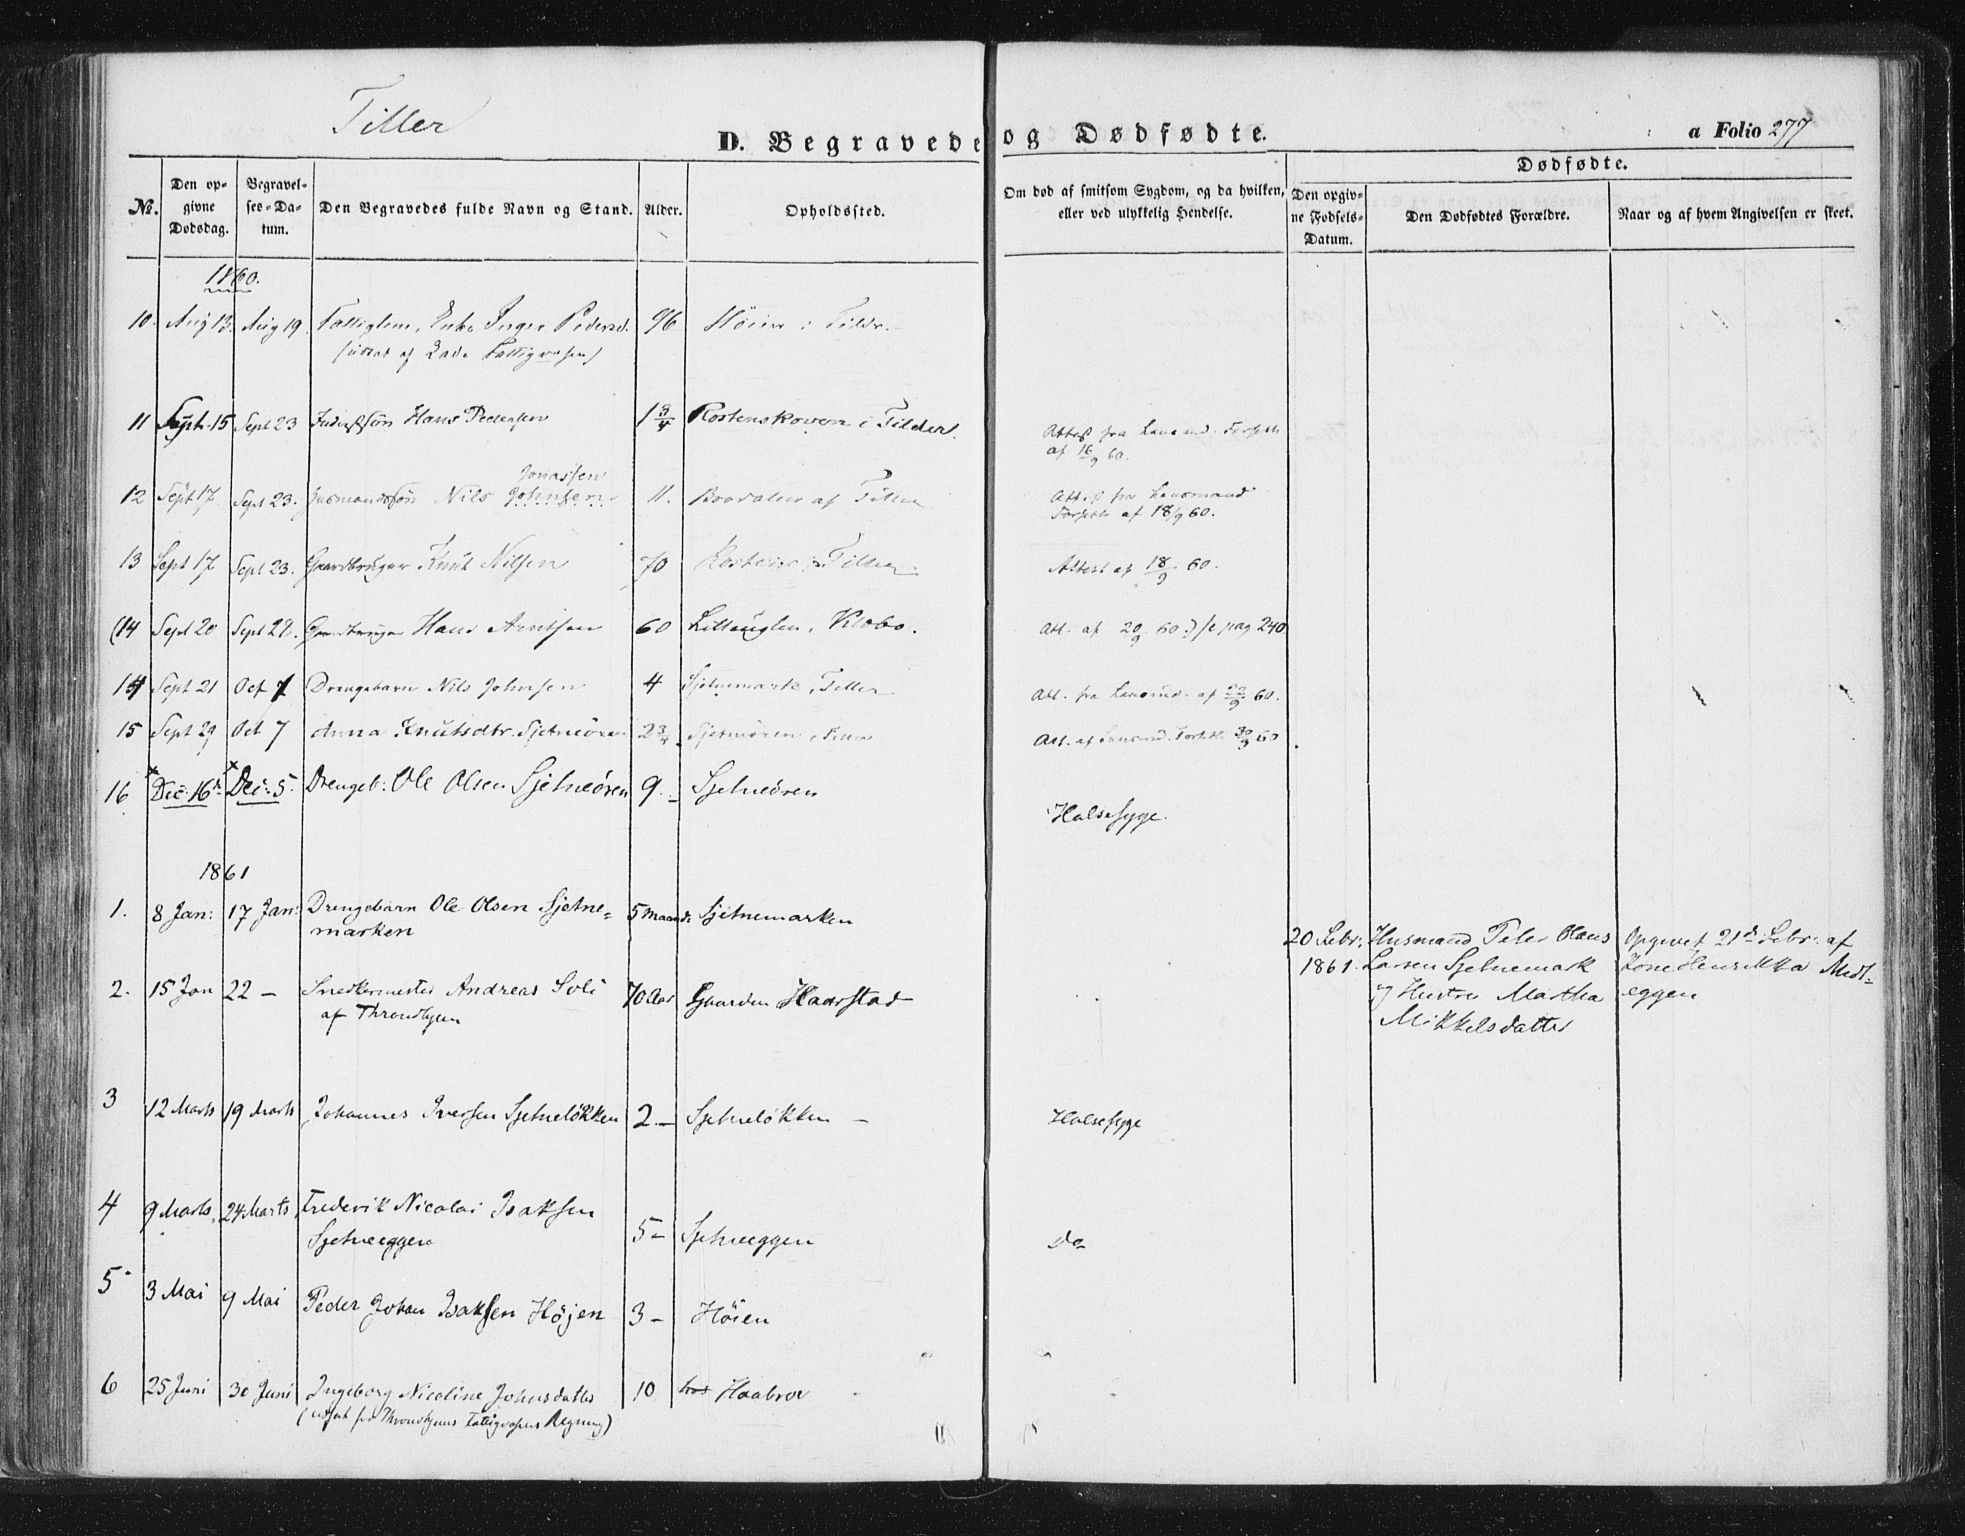 Tiller
D. Begravede og Dødfødte.
a Folio 277
Dødfødte.
No. Den opgivne Dødsdag. Begravelses-Datum. Den Begravedes fulde Navn og Stand. Alder. Opholdssted. Om død af smitsom Sygdom, og da hvilken, eller ved ulykkelig Hendelse. Den opgivne Fødsels-Datum. Den Dødfødtes Forældre. Naar og af hvem Angivelsen er skeet.
1860.
10. Aug 13. Aug 19. Fattiglem, Enke Inger Pedersd. 96 Höien i Tildr.
(udsat af Lade Fattigvesen)
11 Sept. 15 Sept 23 Inderstsön Hans Pedersen 1 3/4 Rostenskoven i Tilder.
Attest fra Lensmd. Forseth
af 16/9 60.
Jonassen
12 Sept 17 Sept 23. Husmandssön Nils Johnsen 11. af Tiller
Attest fra Lensmand
Forseth af 18/9 60.
13 Sept 17 Sept 23. Gaardbruger Knut Nilsen 70 Rosten Tiller
Attest af 18/9 60.
(14 Sept 20 Sept 22. Gaardbruger Hans Arntsen 60 Litleuglen, Klæbo. Att. af 20/9 60.) se pag 240
14 Sept 21 Oct 7 Drengebarn Nils Johnsen 4 Sjetnemark, Tiller Att. fra Lensmd. af 22/9 60.
15 Sept 29 Oct 7 Anna Knutsdtr. Sjetneören 2 3/4 Sjetneören, Tiller Att. af Lensmd. Forseth 30/9 60
16 Dec: 16de Dec: 5. Drengeb: Ole Olsen Sjetneören 9. - Sjetneören
Halsesyge.
1861
1. 8 Jan: 17 Jan: Drengebarn Ole Olsen Sjetne= 5 Maand: Sjetnemarken
marken
20 Febr. Husmand Peter Hans Opgivet 21de Febr. af
1861. Larsen Sjetnemark Jone Henrikka Midt-
og Hustru Martha eggen
Mikkelsdatter
2. 15 Jan 22 — Snedkermester Andreas Soli 70 Aar Gaarden Haarstad
af Throndhjem
3 12 Marts 19 Marts Johannes Iversen Sjetneløkken 2. — Sjetneløkken — Halsesyge
4 9 Marts, 24 Marts, Frederik Nicolai Isaksen
Sjetneeggen 5 — Sjetneeggen do
5. 3 Mai 9 Mai Peder Johan Isaksen Højen 3 — Höien
6 25 Juni 30 Juni Ingeborg Nicoline Johnsdatter 10 hos Haabroe
(udsat for Throndhjems Fattigvesens Regning)